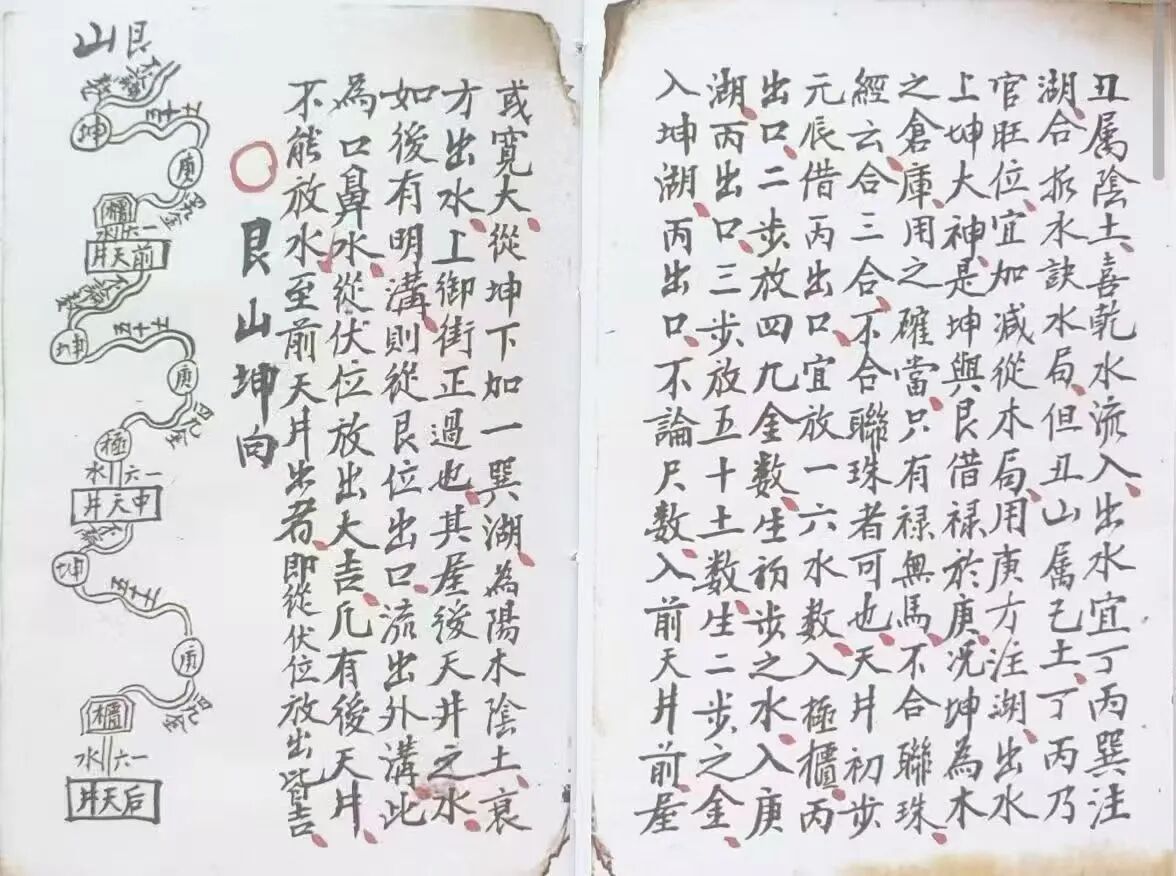 丑属陰土、喜乾水流入、出水宜丁丙巽注
湖、合振水訣水局、但丑山属己土、丁丙乃
官旺位、宜加減從木局、用庚方注湖、出水
上坤大神、是坤與艮借禄於庚、况坤為木
之倉庫、用之確當、只有禄無馬、不合聯珠、
經云、合三合、不合聯珠者可也、天井初步
元辰借丙出口、宜放一六水數、入極櫃、丙
出口、二步放四九金數、生初步之水、入庚
湖、丙出口、三步放五十土數、生二步之金、
入坤湖、丙出口、不論尺數、入前天井前屋
或寬大、從坤下加一巽湖、為陽木陰土、衰
方出水、上御街正過也、其屋後天井之水、
如後有明溝、則從艮位出口、流出外溝、此
為口鼻水、從伏位放出大吉、凡有後天井、
不能放水至前天井出者、即從伏位放出皆吉、
艮山坤向
艮山
坤
五十土
庚
四九金
櫃
一六水
前天井
坤
五十土
庚
四九金
極
一六水
中天井
坤
五十土
庚
四九金
櫃
一六水
后天井